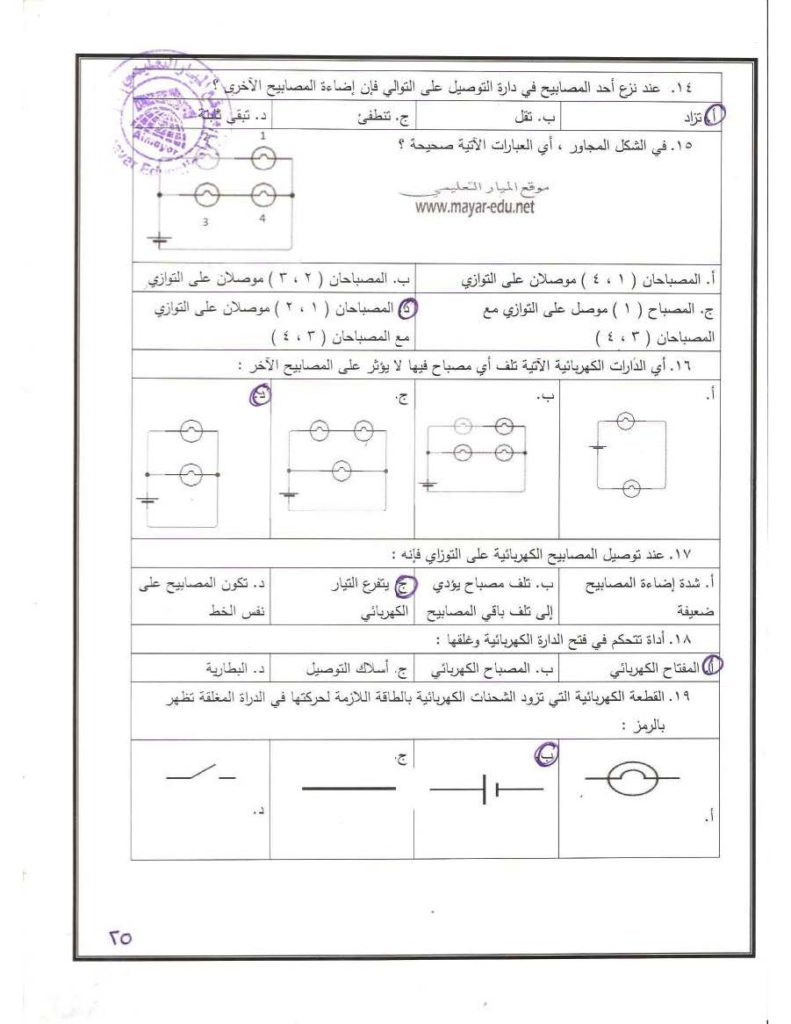 ١٤. عند نزع أحد المصابيح في دارة التوصيل على التوالي فإن إضاءة المصابيح الآخرى ؟
أ. تزاد ب. تقل ج. تنطفئ د. تبقى ثابتة
١٥. في الشكل المجاور ، أي العبارات الآتية صحيحة ؟
1
3 4
موقع الميار التعليمي
www.mayar-edu.net
أ. المصباحان ( ١ ، ٤ ) موصلان على التوازي ب. المصباحان ( ٢ ، ٣ ) موصلان على التوازي
ج. المصباح ( ١ ) موصل على التوازي مع د. المصباحان ( ١ ، ٢ ) موصلان على التوازي
المصباحان ( ٣ ، ٤ ) مع المصباحان ( ٣ ، ٤ )
١٦. أي الدارات الكهربائية الآتية تلف أي مصباح فيها لا يؤثر على المصابيح الآخر :
أ. ب. ج. د.
١٧. عند توصيل المصابيح الكهربائية على التوزاي فإنه :
أ. شدة إضاءة المصابيح ب. تلف مصباح يؤدي ج. يتفرع التيار د. تكون المصابيح على
ضعيفة إلى تلف باقي المصابيح الكهربائي نفس الخط
١٨. أداة تتحكم في فتح الدارة الكهربائية وغلقها :
أ. المفتاح الكهربائي ب. المصباح الكهربائي ج. أسلاك التوصيل د. البطارية
١٩. القطعة الكهربائية التي تزود الشحنات الكهربائية بالطاقة اللازمة لحركتها في الدراة المغلقة تظهر
بالرمز :
أ. ب. ج. د.
٢٥